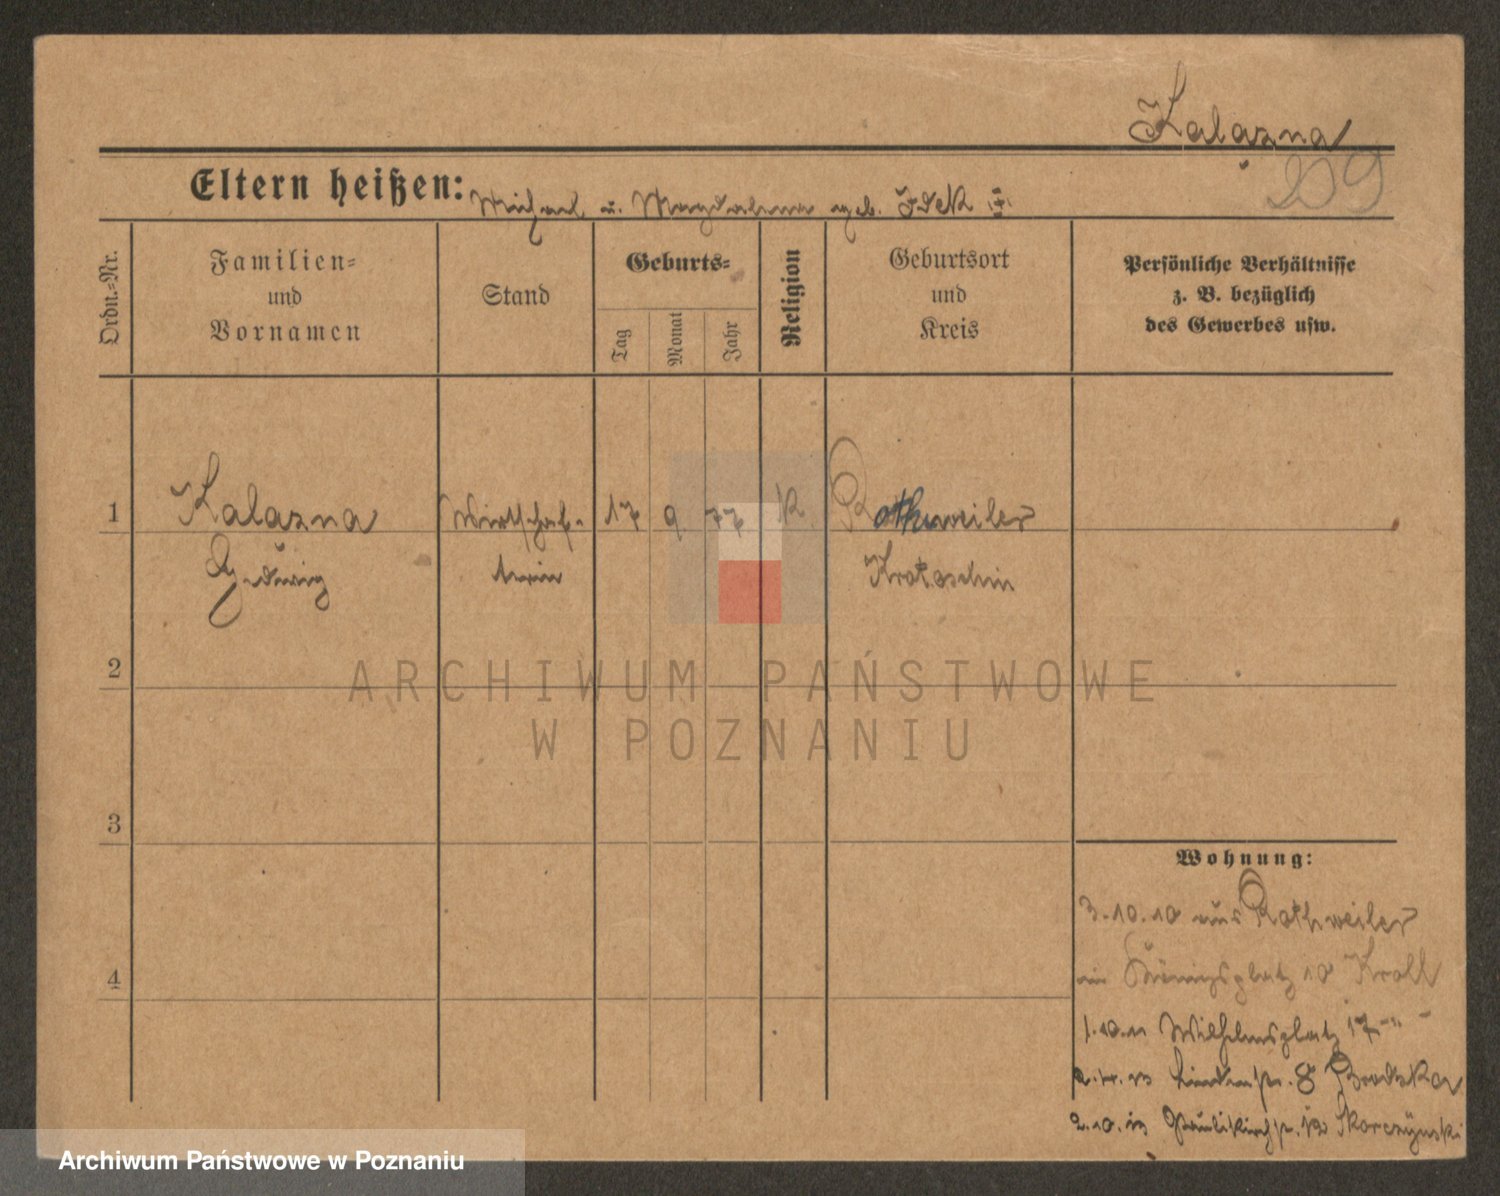 Kalazna
209
Eltern heißen: Michael u. Magdalena geb.
Ordn.=Nr.
Familien=
und
Vornamen
Stand
Geburts=
Tag
Monat
Jahr
Religion
Geburtsort
und
Kreis
Persönliche Verhältnisse
z. B. bezüglich
des Gewerbes usw.
1
Kalazna
Wirtschaf-
17
9
77
K.
Rothweiler
Hedwig
terin
Krotoschin
2
3
4
Wohnung:
3.10.10 aus Rothweiler
Königsplatz 10 Kroll
1.10.11 Wilhelmsplatz 17 -"-
Lindenstr. 8
2.10.13 Paulikirchstr. Skorczynski
ARCHIWUM PAŃSTWOWE
W POZNANIU
Archiwum Państwowe w Poznaniu